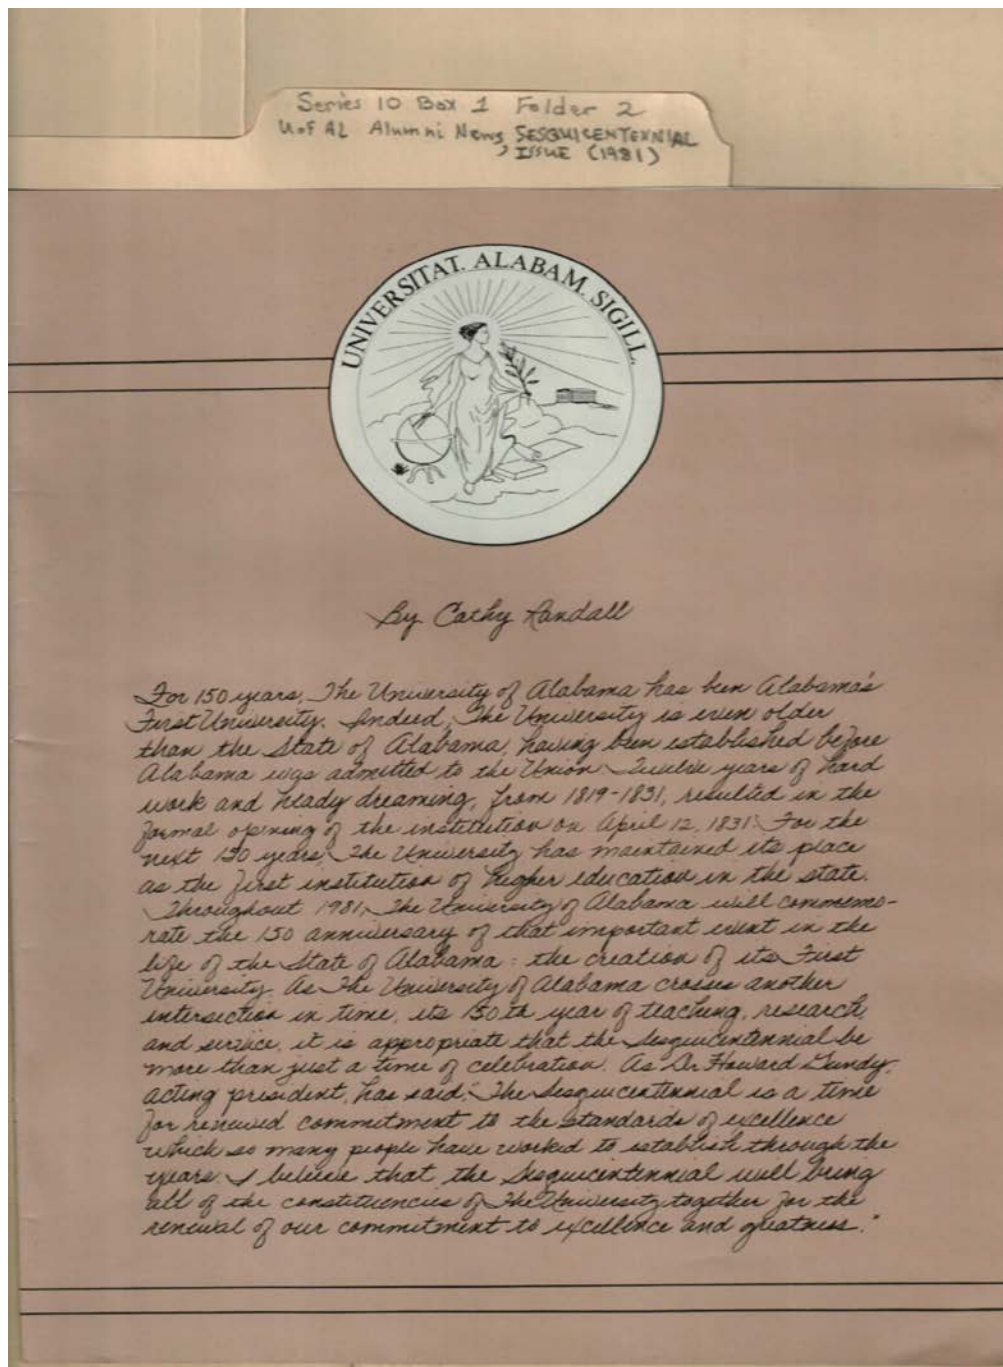 Series 10 Box 1 Folder 2
U of AL Alumni News, SESQUICENTENNIAL
ISSUE (1981)
UNIVERSITAT. ALABAM. SIGILL.
By Cathy Randall
For 150 years, The University of Alabama has been Alabama's
First University. Indeed, The University is even older
than the State of Alabama, having been established before
Alabama was admitted to the Union. Twelve years of hard
work and heady dreaming, from 1819-1831, resulted in the
formal opening of the institution on April 12, 1831. For the
next 150 years, The University has maintained its place
as the first institution of higher education in the state.
Throughout 1981, The University of Alabama will commemo-
rate the 150 anniversary of that important event in the
life of the State of Alabama: the creation of its First
University. As The University of Alabama crosses another
intersection in time, its 150th year of teaching, research,
and service, it is appropriate that the Sesquicentennial be
more than just a time of celebration. As Dr. Howard Gundy,
acting president, has said, "The Sesquicentennial is a time
for renewed commitment to the standards of excellence
which so many people have worked to establish through the
years. I believe that the Sesquicentennial will bring
all of the constituencies of The University together for the
renewal of our commitment to excellence and greatness."